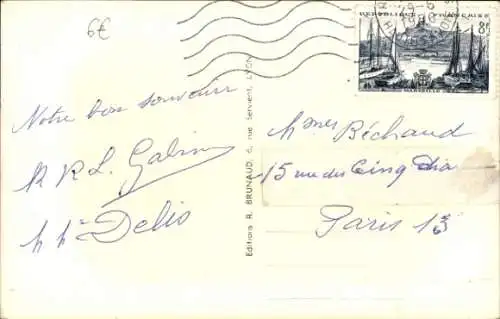 6€
RÉPUBLIQUE FRANÇAISE
8F
29-6
MARSEILLE
Notre bon souvenir
R R L. Galin
Delis
Editions R. BRUNAUD, 6, rue Servient, LYON
Mmes Béchaud
15 rue des Cinq Dia
Paris 13